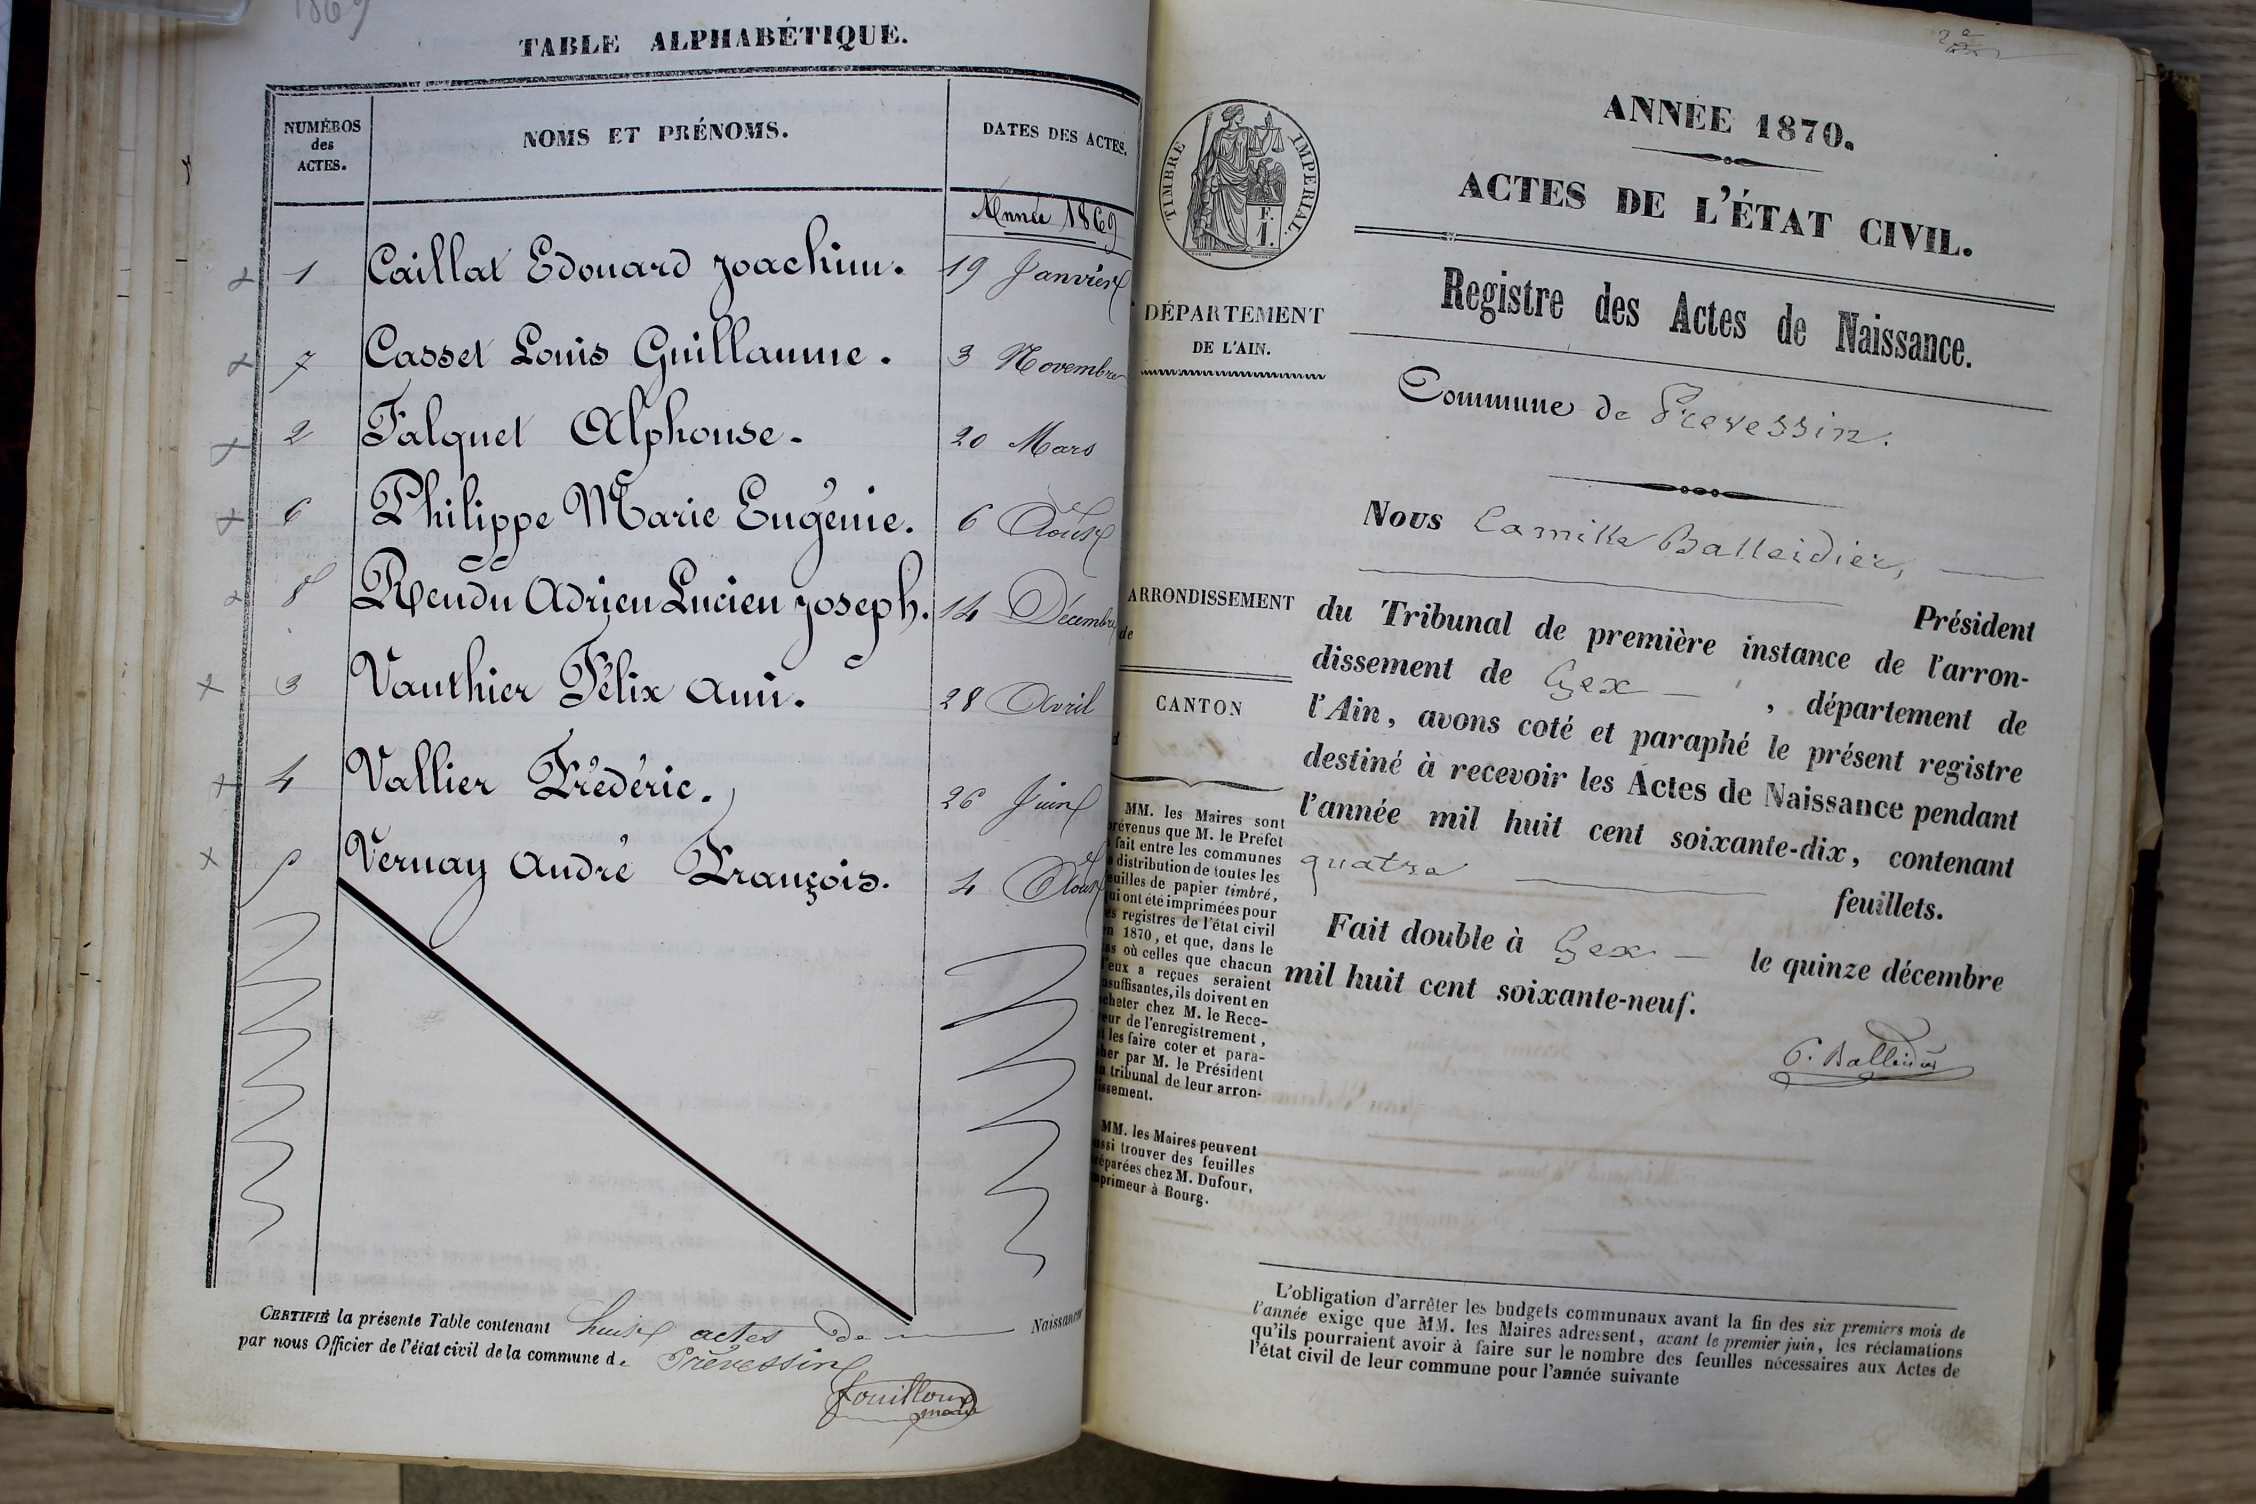 1869
TABLE ALPHABÉTIQUE.
NUMÉROS des ACTES.
NOMS ET PRÉNOMS.
DATES DES ACTES.
Année 1869
1 Caillat Edouard Joachim. 19 Janvier
7 Casset Louis Guillaume. 3 Novembre
2 Falquet Alphonse. 20 Mars
6 Philippe Marie Eugénie. 6 Août
8 Rendu Adrien Lucien Joseph. 14 Décembre
3 Vauthier Félix Ami. 28 Avril
4 Vallier Frédéric. 26 Juin
5 Vernay André François. 4 Août
CERTIFIÉ la présente Table contenant huit actes de Naissance
par nous Officier de l'état civil de la commune de Prévessin
fouilloux
maire
2e
TIMBRE IMPERIAL.
F.
1.
ANNÉE 1870.
ACTES DE L'ÉTAT CIVIL.
Registre des Actes de Naissance.
DÉPARTEMENT
DE L'AIN.
Commune de Prevessin.
Nous Camille Balleidier,
Président
ARRONDISSEMENT
de
du Tribunal de première instance de l'arron-
dissement de Gex, département de
CANTON
d
l'Ain, avons coté et paraphé le présent registre
destiné à recevoir les Actes de Naissance pendant
l'année mil huit cent soixante-dix, contenant
quatre feuillets.
Fait double à Gex le quinze décembre
mil huit cent soixante-neuf.
C. Balleidier
MM. les Maires sont
prévenus que M. le Préfet
a fait entre les communes
la distribution de toutes les
feuilles de papier timbré,
qui ont été imprimées pour
les registres de l'état civil
en 1870, et que, dans le
cas où celles que chacun
d'eux a reçues seraient
insuffisantes, ils doivent en
acheter chez M. le Rece-
veur de l'enregistrement,
et les faire coter et para-
pher par M. le Président
du tribunal de leur arron-
dissement.
MM. les Maires peuvent
aussi trouver des feuilles
préparées chez M. Dufour,
imprimeur à Bourg.
L'obligation d'arrêter les budgets communaux avant la fin des six premiers mois de
l'année exige que MM. les Maires adressent, avant le premier juin, les réclamations
qu'ils pourraient avoir à faire sur le nombre des feuilles nécessaires aux Actes de
l'état civil de leur commune pour l'année suivante